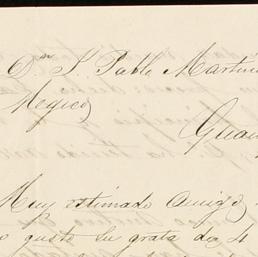 Dn J. Pablo Martin
Mexico
Guan
Muy estimado amigo
gusto su grata de 4